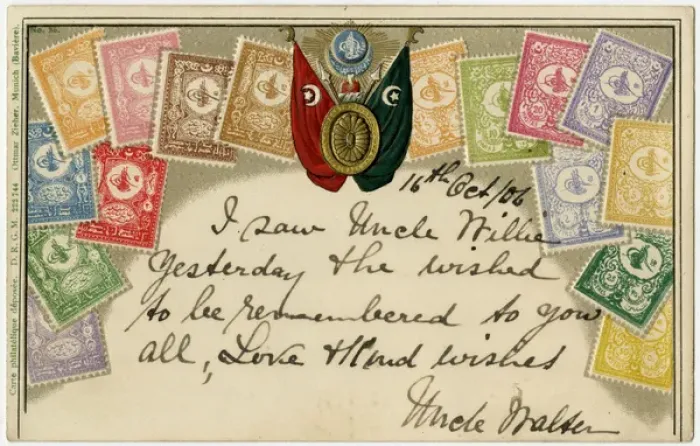 No. 36.
Carte philatélique déposée. D. R. G. M. 222744 Ottmar Zieher, Munich (Bavière).
16th Oct/06
I saw Uncle Willie
Yesterday & he wished
to be remembered to you
all, Love & Kind wishes
Uncle Walter